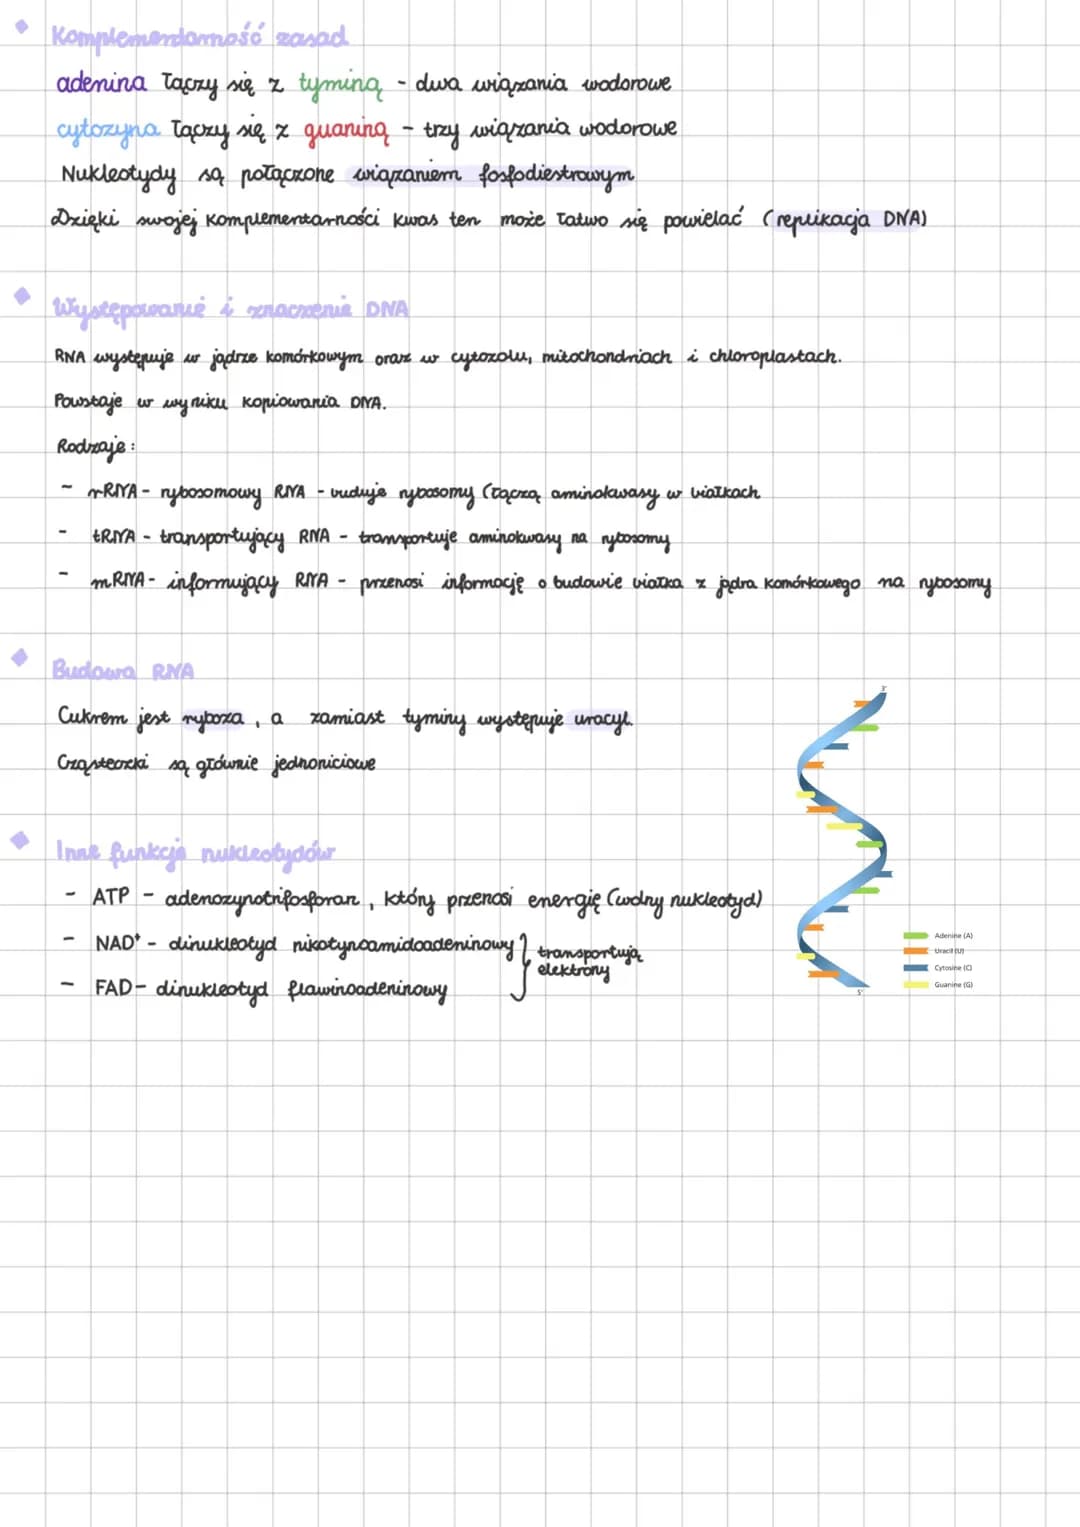 Komplementarność zasad
adenina łączy się z tyminą - dwa wiązania wodorowe
cytozyna łączy się z guaniną - trzy wiązania wodorowe
Nukleotydy są połączone wiązaniem fosfodiestrowym
Dzięki swojej komplementarności kwas ten może łatwo się powielać (replikacja DNA)
Występowanie i znaczenie DNA
RNA występuje w jądrze komórkowym oraz w cytozolu, mitochondriach i chloroplastach.
Powstaje w wyniku kopiowania DNA.
Rodzaje:
- rRNA - rybosomowy RNA - buduje rybosomy (łączą aminokwasy w białkach
- tRNA - transportujący RNA - transportuje aminokwasy na rybosomy
- mRNA - informujący RNA - przenosi informację o budowie białka z jądra komórkowego na rybosomy
Budowa RNA
Cukrem jest ryboza, a zamiast tyminy występuje uracyl.
Cząsteczki są głównie jednoniciowe
3'
Inne funkcje nukleotydów
- ATP - adenozynotrifosforan, który przenosi energię (wolny nukleotyd)
- NAD⁺ - dinukleotyd nikotynoamidoadeninowy
- FAD - dinukleotyd flawinoadeninowy
} transportują
elektrony
Adenine (A)
Uracil (U)
Cytosine (C)
Guanine (G)
5'